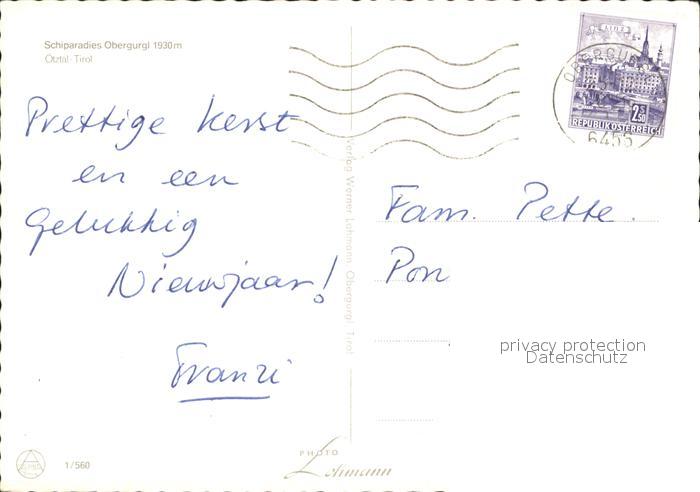 Schiparadies Obergurgl 1930m
Ötztal · Tirol
Prettige kerst
en een
Gelukkig
Nieuwjaar!
Franzi
1/560
Verlag Werner Lohmann Obergurgl Tirol
PHOTO
Lohmann
LINZ
2.50
REPUBLIK ÖSTERREICH
OBERGURGL
6456
Fam. Pette.
Pon
privacy protection
Datenschutz